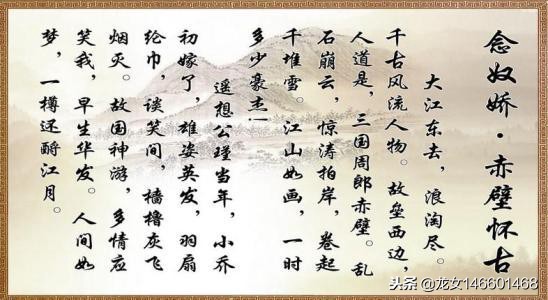 念奴娇·赤壁怀古
大江东去，浪淘尽。
千古风流人物。故垒西边，
人道是，三国周郎赤壁。乱
石崩云，惊涛拍岸，卷起
千堆雪。江山如画，一时
多少豪杰！
遥想公瑾当年，小乔
初嫁了，雄姿英发，羽扇
纶巾，谈笑间，樯橹灰飞
烟灭。故国神游，多情应
笑我，早生华发。人间如
梦，一樽还酹江月。
头条 @龙女146601468